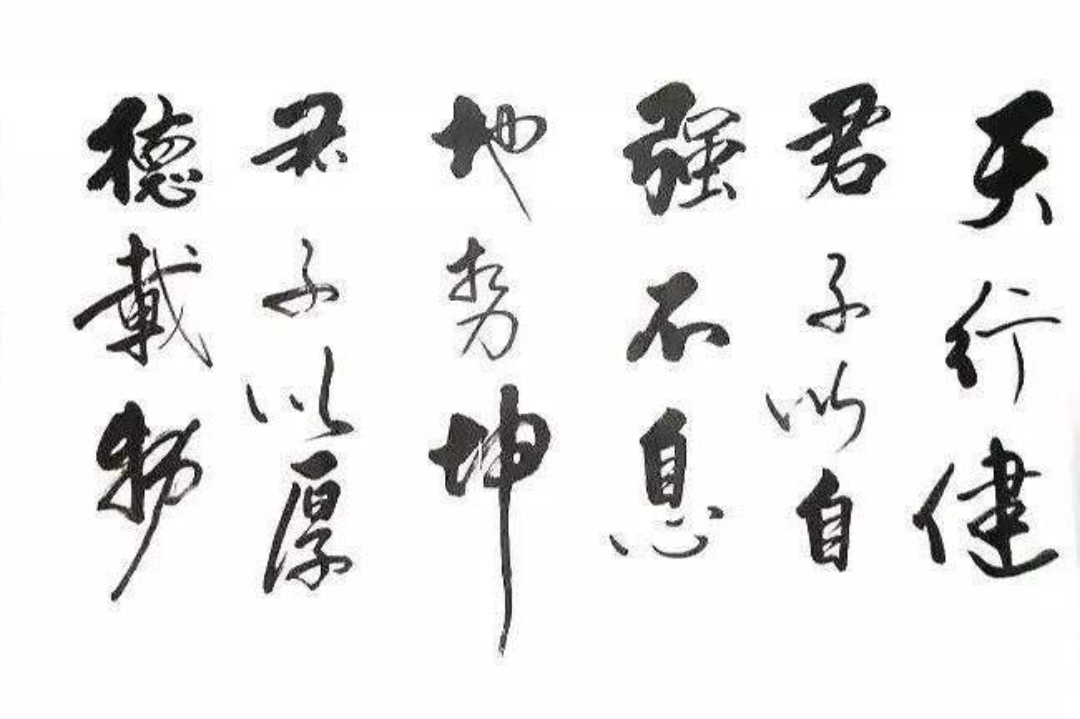 天行健
君子以自
強不息
地势坤
君子以厚
德載物